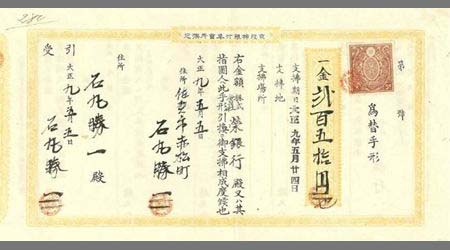 第 號
爲替手形
一金弐百五拾円也
支拂期日 大正九年五月廿四日
支拂地
支拂場所
右金額 株式會社 榮銀行 殿又ハ其
指圖人ヘ此手形引換ニ御支拂相成度候也
大正九年五月五日
住所 市赤松町
石丸勝一
住所
石丸勝一殿
引受
大正九年五月五日
石丸勝一